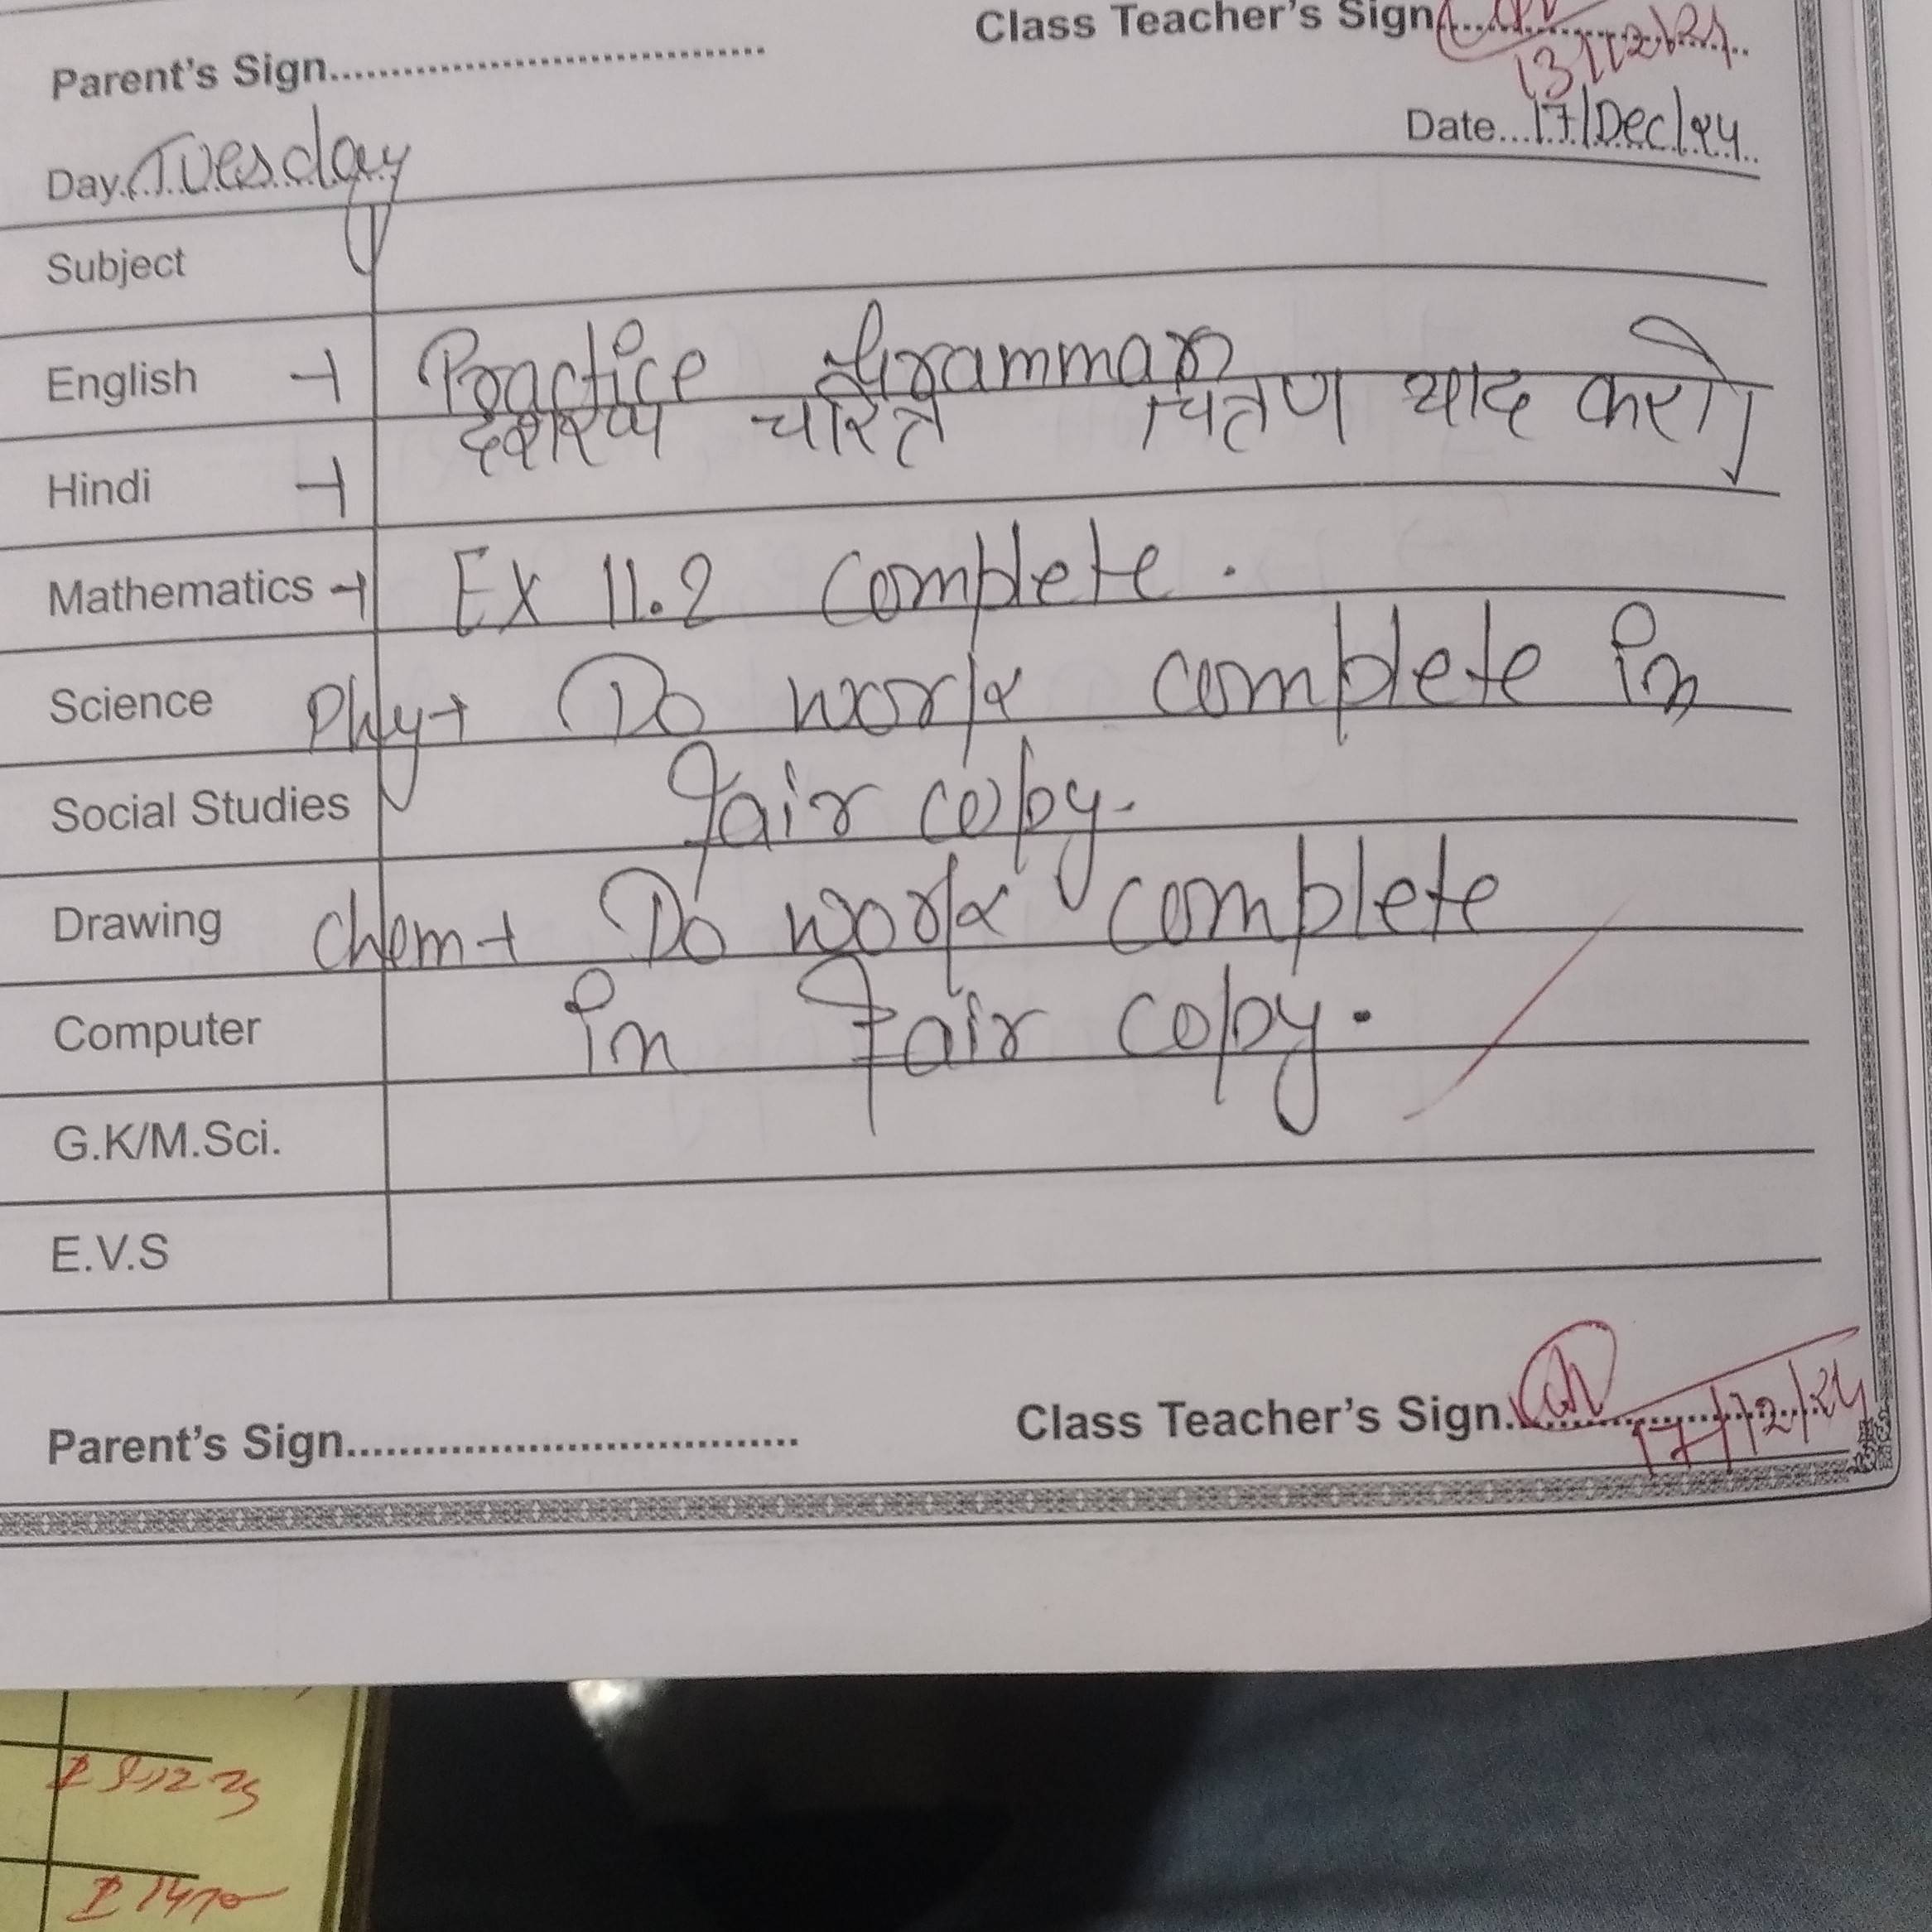 Class Teacher's Sign.....................
13/12/24
Parent's Sign.................................
Date...17/Dec/24
Day.Tuesday
Subject
English → Practice Grammar
Hindi → दशरथ चरित्र चित्रण याद करो।
Mathematics → Ex 11.2 complete.
Science Phy → Do work complete in
Social Studies fair copy.
Drawing Chem → Do work complete
Computer in fair copy.
G.K/M.Sci.
E.V.S
Parent's Sign...................................
Class Teacher's Sign........................
17/12/24